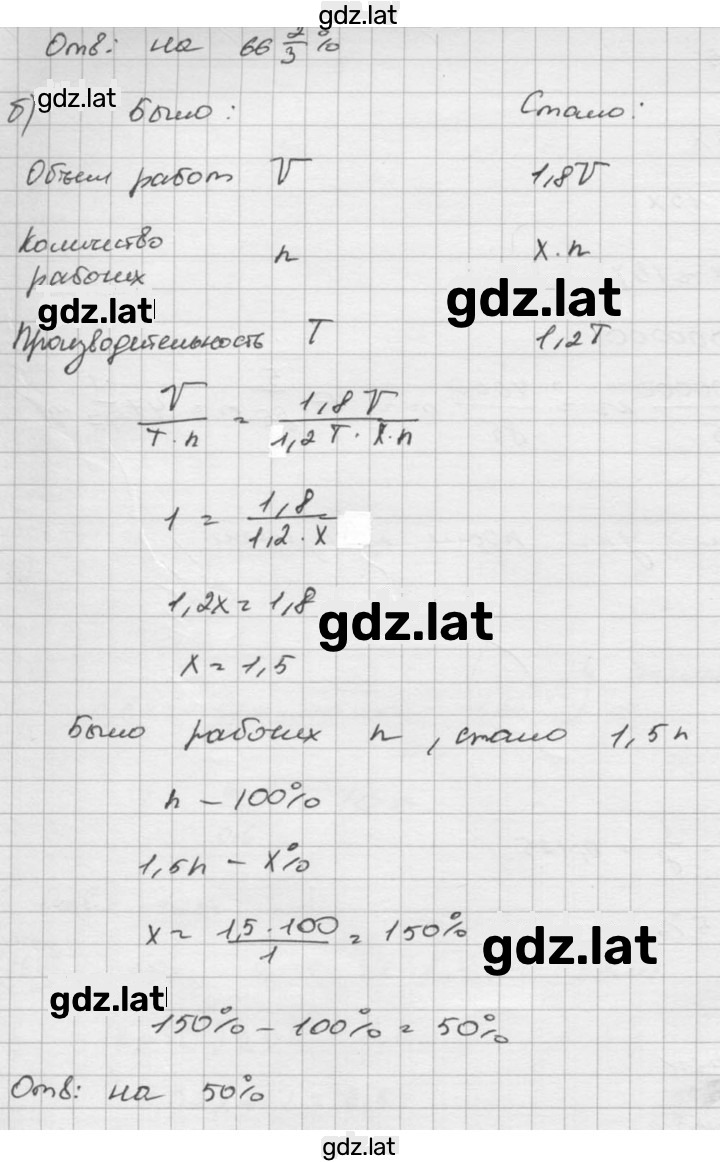 gdz.lat
Отв: на 66 2/3 %
б) gdz.lat Было: Стало:
Объем работ V 1,8V
Количество рабочих n x·n
gdz.lat gdz.lat
Производительность T 1,2T
V/(T·n) = 1,8V/(1,2T·x·n)
1 = 1,8/(1,2·x)
1,2x = 1,8
gdz.lat
x = 1,5
Было рабочих n, стало 1,5n
n – 100%
1,5n – x%
x = (1,5·100)/1 = 150%
gdz.lat
gdz.lat
150% – 100% = 50%
Отв: на 50%
gdz.lat